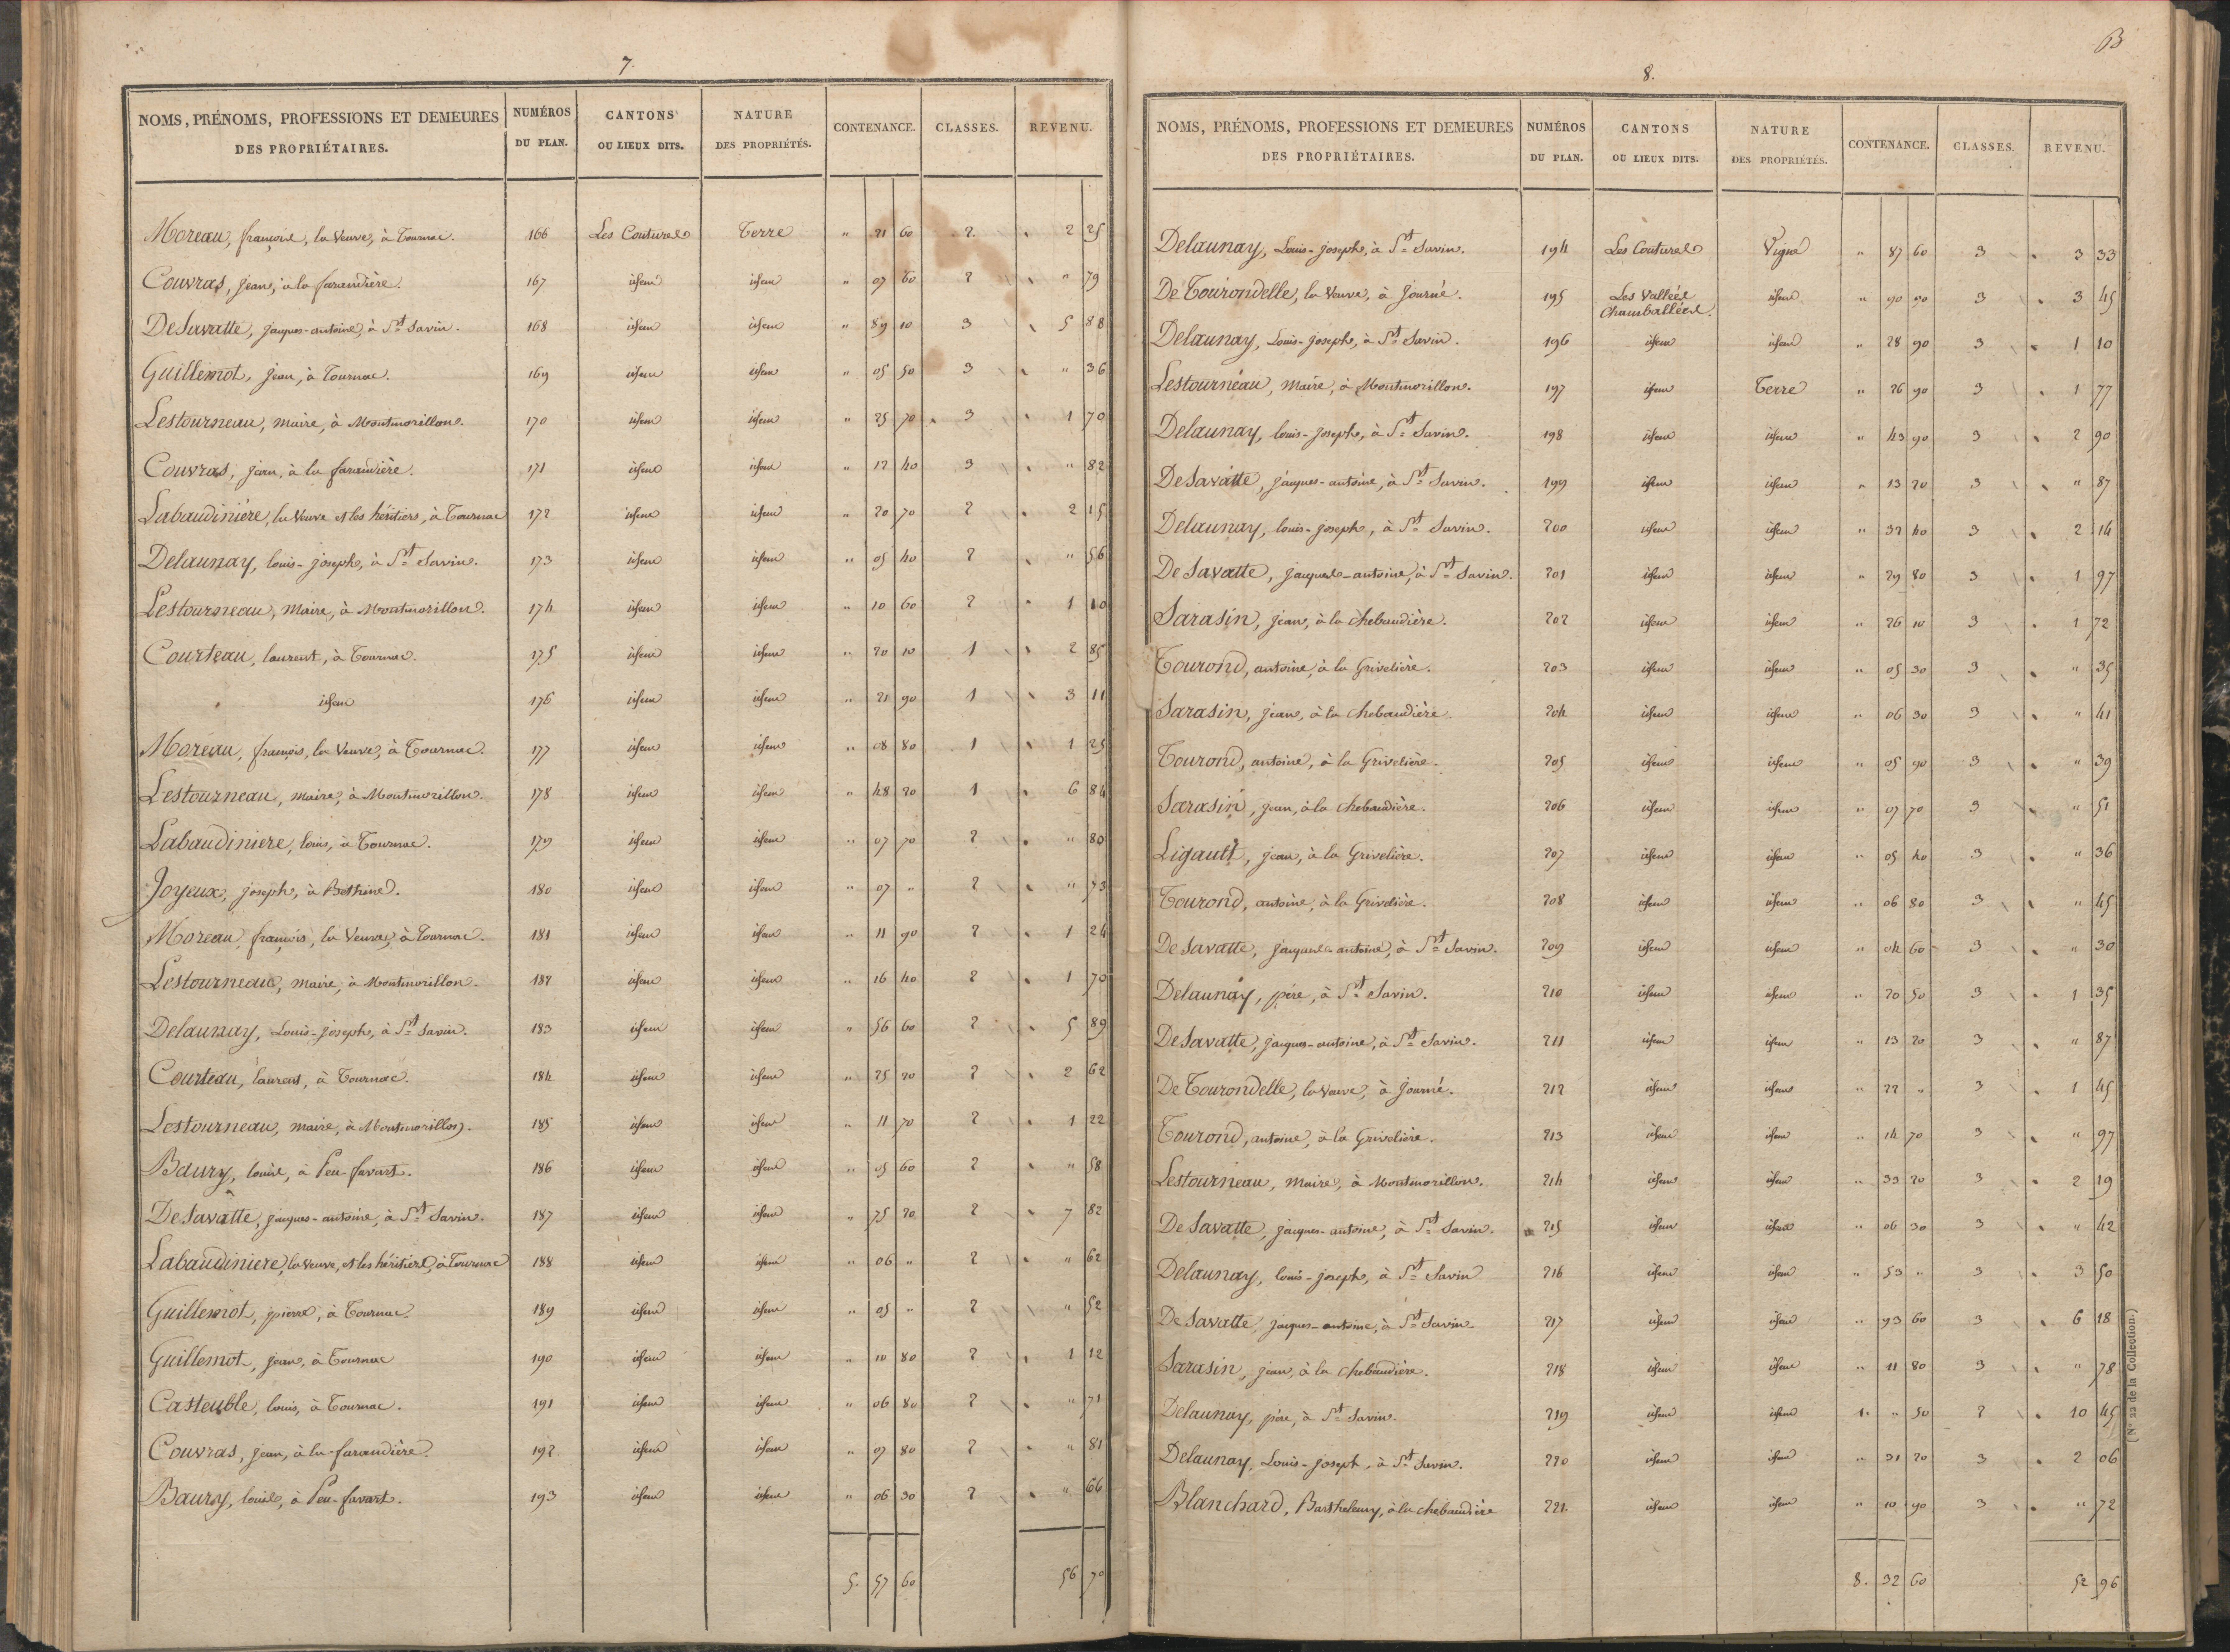 7.
NOMS, PRÉNOMS, PROFESSIONS ET DEMEURES DES PROPRIÉTAIRES. NUMÉROS DU PLAN. CANTONS OU LIEUX DITS. NATURE DES PROPRIÉTÉS. CONTENANCE. CLASSES. REVENU.
Moreau, françois, la Veuve, à Tournac. 166 Les Coutures Terre " 21 60 2 2 25
Couvras, jean, à la farandière. 167 idem idem " 07 60 2 " 79
De Savatte, jacques-antoine, à St Savin. 168 idem idem " 89 10 3 5 88
Guillemot, jean, à Tournac. 169 idem idem " 05 50 3 " 36
Lestourneau, maire, à Montmorillon. 170 idem idem " 25 70 3 1 70
Couvras, jean, à la farandière. 171 idem idem " 12 40 3 " 82
Labaudinière, la Veuve et les héritiers, à Tournac 172 idem idem " 20 70 2 2 15
Delaunay, louis-joseph, à St Savin. 173 idem idem " 05 40 2 " 56
Lestourneau, maire, à Montmorillon. 174 idem idem " 10 60 2 1 10
Courteau, laurent, à Tournac. 175 idem idem " 20 10 1 2 85
idem 176 idem idem " 21 90 1 3 11
Moreau, françois, la Veuve, à Tournac. 177 idem idem " 08 80 1 1 25
Lestourneau, maire, à Montmorillon. 178 idem idem " 48 20 1 6 84
Labaudiniere, louis, à Tournac. 179 idem idem " 07 70 2 " 80
Joyeux, joseph, à Bethines. 180 idem idem " 07 " 2 " 73
Moreau, françois, la Veuve, à Tournac. 181 idem idem " 11 90 2 1 24
Lestourneau, maire, à Montmorillon. 182 idem idem " 16 40 2 1 70
Delaunay, Louis-joseph, à St Savin. 183 idem idem " 56 60 2 5 89
Courteau, laurent, à Tournac. 184 idem idem " 25 20 2 2 62
Lestourneau, maire, à Montmorillon. 185 idem idem " 11 70 2 1 22
Baury, louis, à Peu-favart. 186 idem idem " 05 60 2 " 58
De Savatte, jacques-antoine, à St Savin. 187 idem idem " 75 20 2 7 82
Labaudiniere, la Veuve, et les héritiers, à Tournac 188 idem idem " 06 " 2 " 62
Guillemot, pierre, à Tournac. 189 idem idem " 05 " 2 " 52
Guillemot, jean, à Tournac 190 idem idem " 10 80 2 1 12
Casteuble, louis, à Tournac. 191 idem idem " 06 80 2 " 71
Couvras, jean, à la farandière. 192 idem idem " 07 80 2 " 81
Baury, louis, à Peu-favart. 193 idem idem " 06 30 2 " 66
5. 57 60 56 70
B
8.
NOMS, PRÉNOMS, PROFESSIONS ET DEMEURES DES PROPRIÉTAIRES. NUMÉROS DU PLAN. CANTONS OU LIEUX DITS. NATURE DES PROPRIÉTÉS. CONTENANCE. CLASSES. REVENU.
Delaunay, Louis-joseph, à St Savin. 194 Les Coutures Vigne " 87 60 3 3 33
De Tourondelle, la Veuve, à Journé. 195 Les Vallées Chamballées. idem " 90 90 3 3 45
Delaunay, Louis-joseph, à St Savin. 196 idem idem " 28 90 3 1 10
Lestourneau, maire, à Montmorillon. 197 idem Terre " 26 90 3 1 77
Delaunay, louis-joseph, à St Savin. 198 idem idem " 43 90 3 2 90
De Savatte, jacques-antoine, à St Savin. 199 idem idem " 13 20 3 " 87
Delaunay, louis-joseph, à St Savin. 200 idem idem " 32 40 3 2 14
De Savatte, jacques-antoine, à St Savin. 201 idem idem " 29 80 3 1 97
Sarasin, jean, à la chebaudière. 202 idem idem " 26 10 3 1 72
Tourond, antoine, à la Grivelière. 203 idem idem " 05 30 3 " 35
Sarasin, jean, à la chebaudière. 204 idem idem " 06 30 3 " 41
Tourond, antoine, à la Grivelière. 205 idem idem " 05 90 3 " 39
Sarasin, jean, à la chebaudière. 206 idem idem " 07 70 3 " 51
Ligault, jean, à la Grivelière. 207 idem idem " 05 40 3 " 36
Tourond, antoine, à la Grivelière. 208 idem idem " 06 80 3 " 45
De Savatte, jacques-antoine, à St Savin. 209 idem idem " 04 60 3 " 30
Delaunay, père, à St Savin. 210 idem idem " 20 50 3 1 35
De Savatte, jacques-antoine, à St Savin. 211 idem idem " 13 20 3 " 87
De Tourondelle, la Veuve, à Journé. 212 idem idem " 22 " 3 1 45
Tourond, antoine, à la Grivelière. 213 idem idem " 14 70 3 " 97
Lestourneau, maire, à Montmorillon. 214 idem idem " 33 20 3 2 19
De Savatte, jacques-antoine, à St Savin. 215 idem idem " 06 30 3 " 42
Delaunay, louis-joseph, à St Savin 216 idem idem " 53 " 3 3 50
De Savatte, jacques-antoine, à St Savin 217 idem idem " 93 60 3 6 18
Sarasin, jean, à la chebaudière. 218 idem idem " 11 80 3 " 78
Delaunay, père, à St Savin. 219 idem idem 1. " 50 2 10 45
Delaunay, Louis-joseph, à St Savin. 220 idem idem " 31 20 3 2 06
Blanchard, Barthelemy, à la chebaudière 221. idem idem " 10 90 3 " 72
8. 32 60 52 96
(N° 22 de la Collection.)